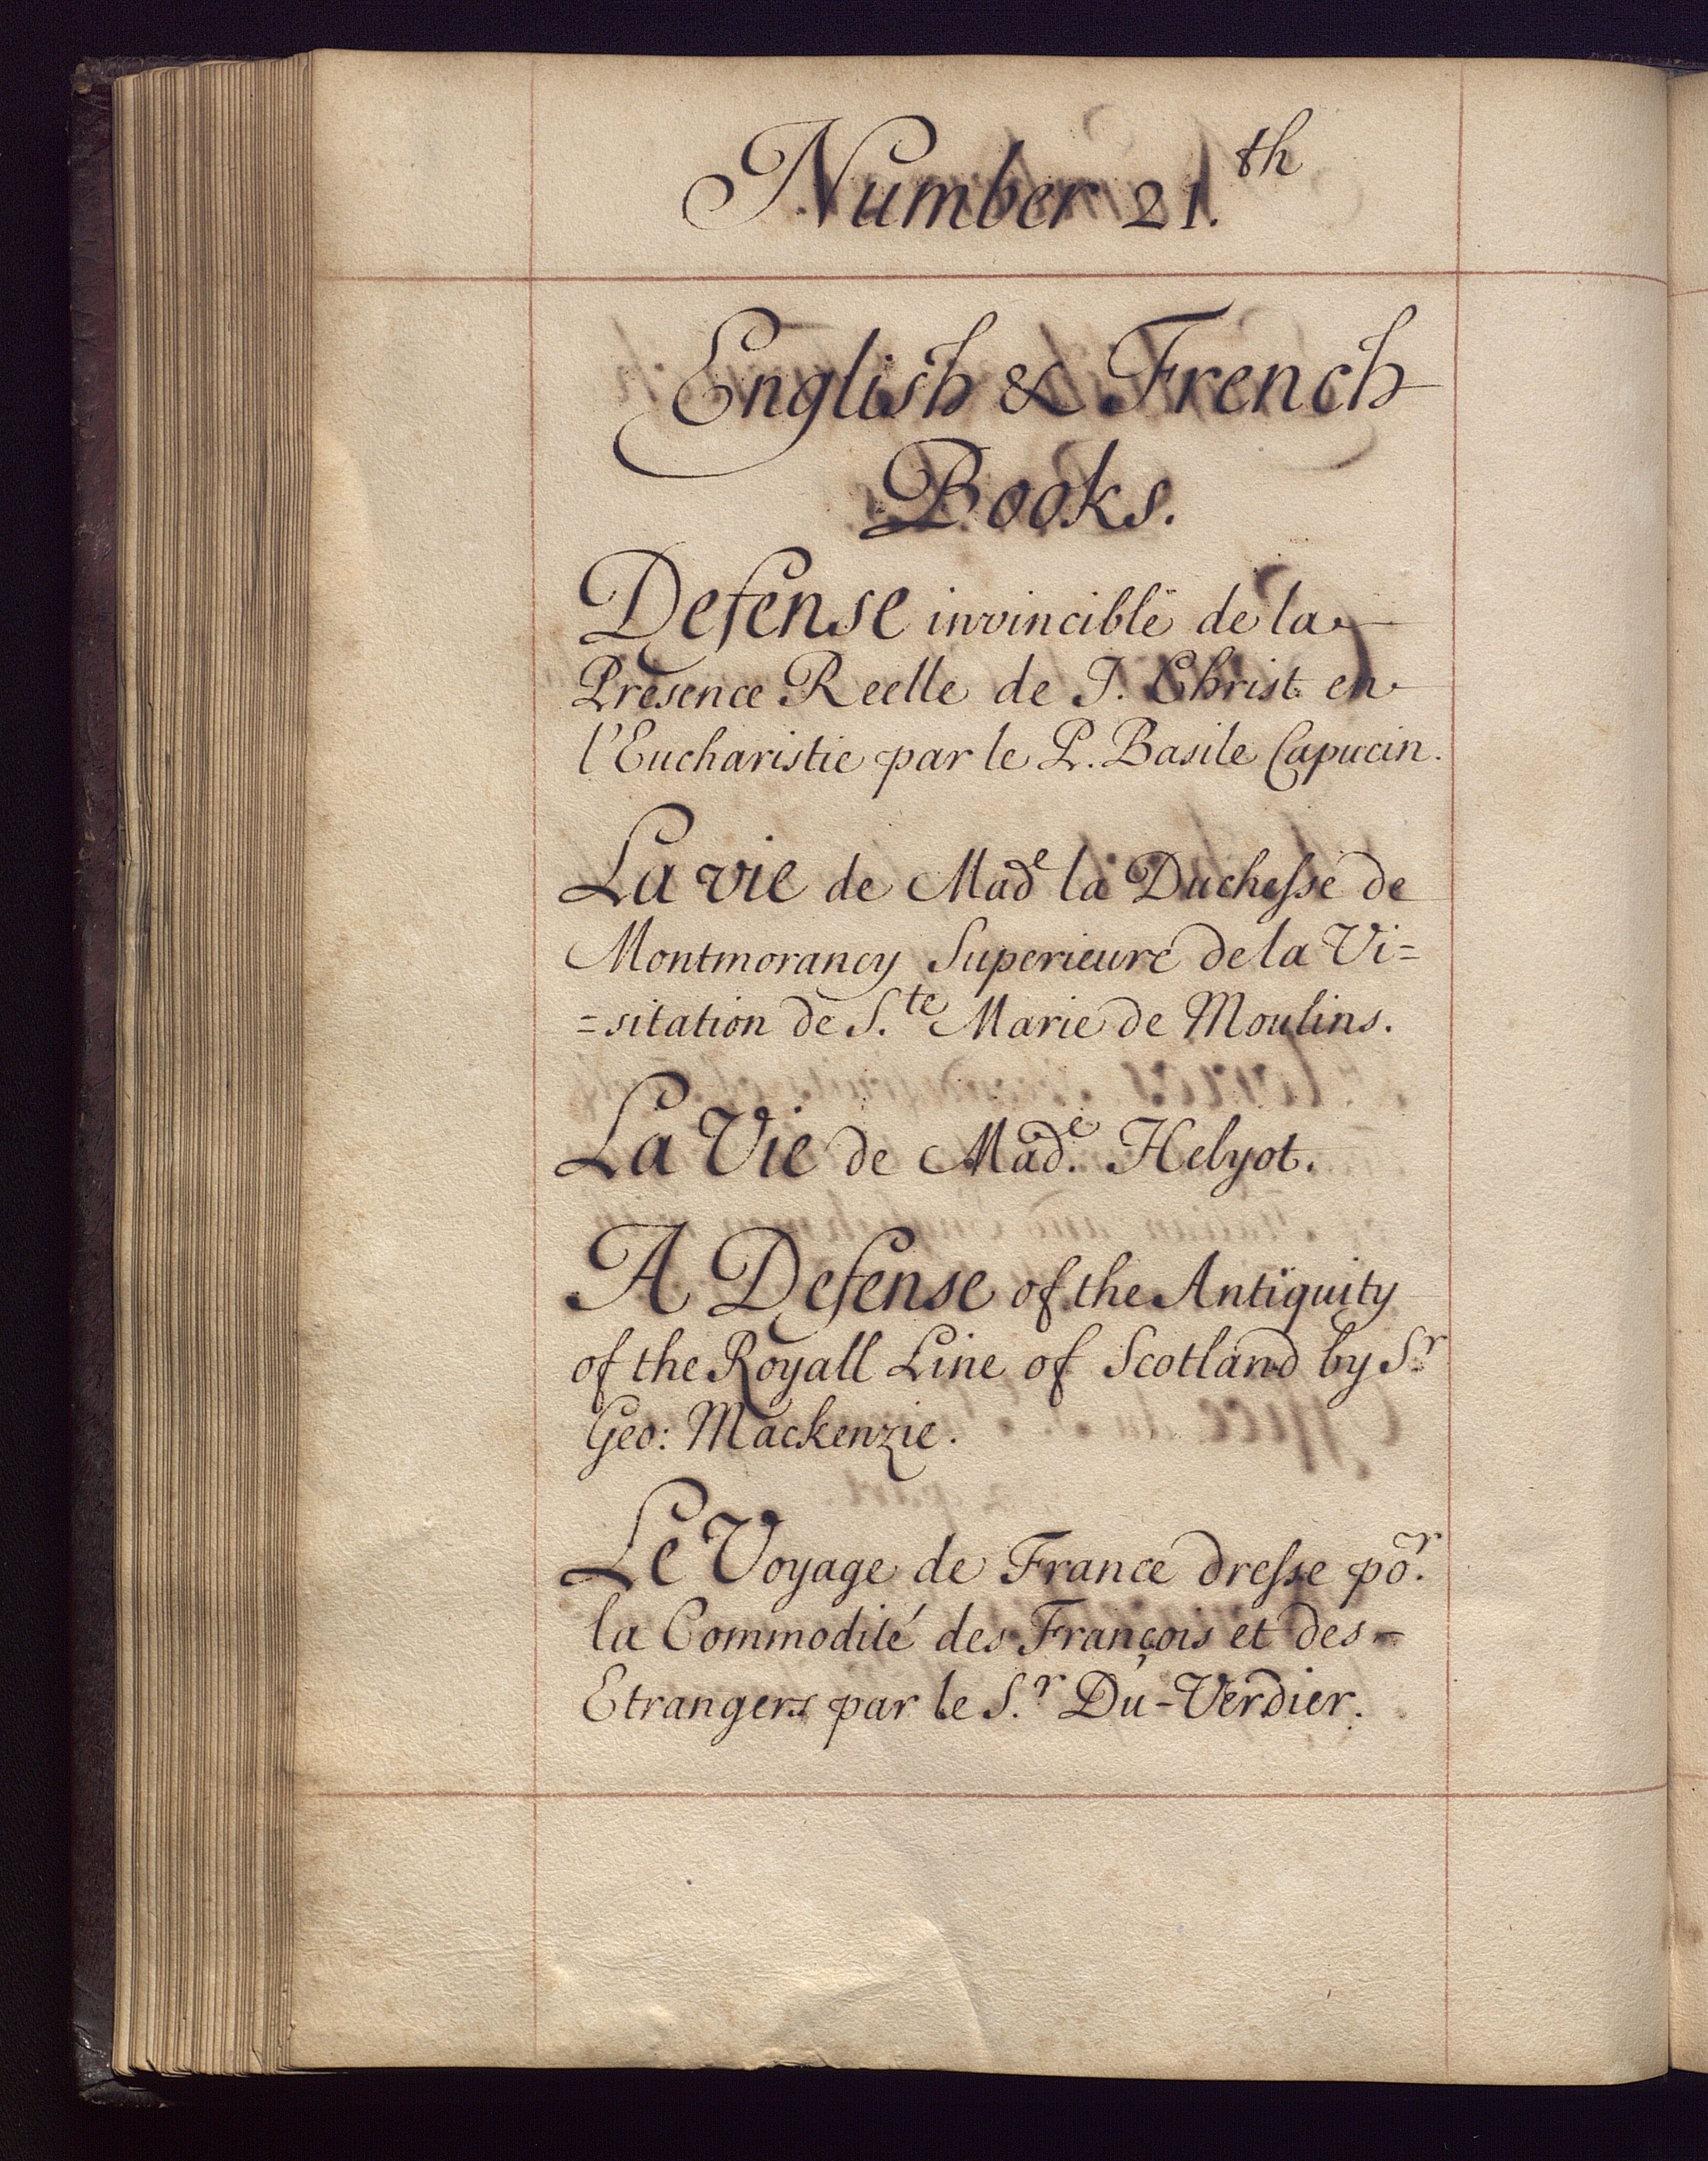 Number 21.th
English & French
Books.
Defense invincible de la
Presence Reelle de J. Christ en
l'Eucharistie par le P. Basile Capucin.
La vie de Made la Duchesse de
Montmorancy Superieure de la Vi=
=sitation de S.te Marie de Moulins.
La Vie de Made. Helyot.
A Defense of the Antiquity
of the Royall Line of Scotland by Sr
Geo: Mackenzie.
Le Voyage de France dresse por.
la Commodité des François et des
Etrangers par le S.r Du-Verdier.